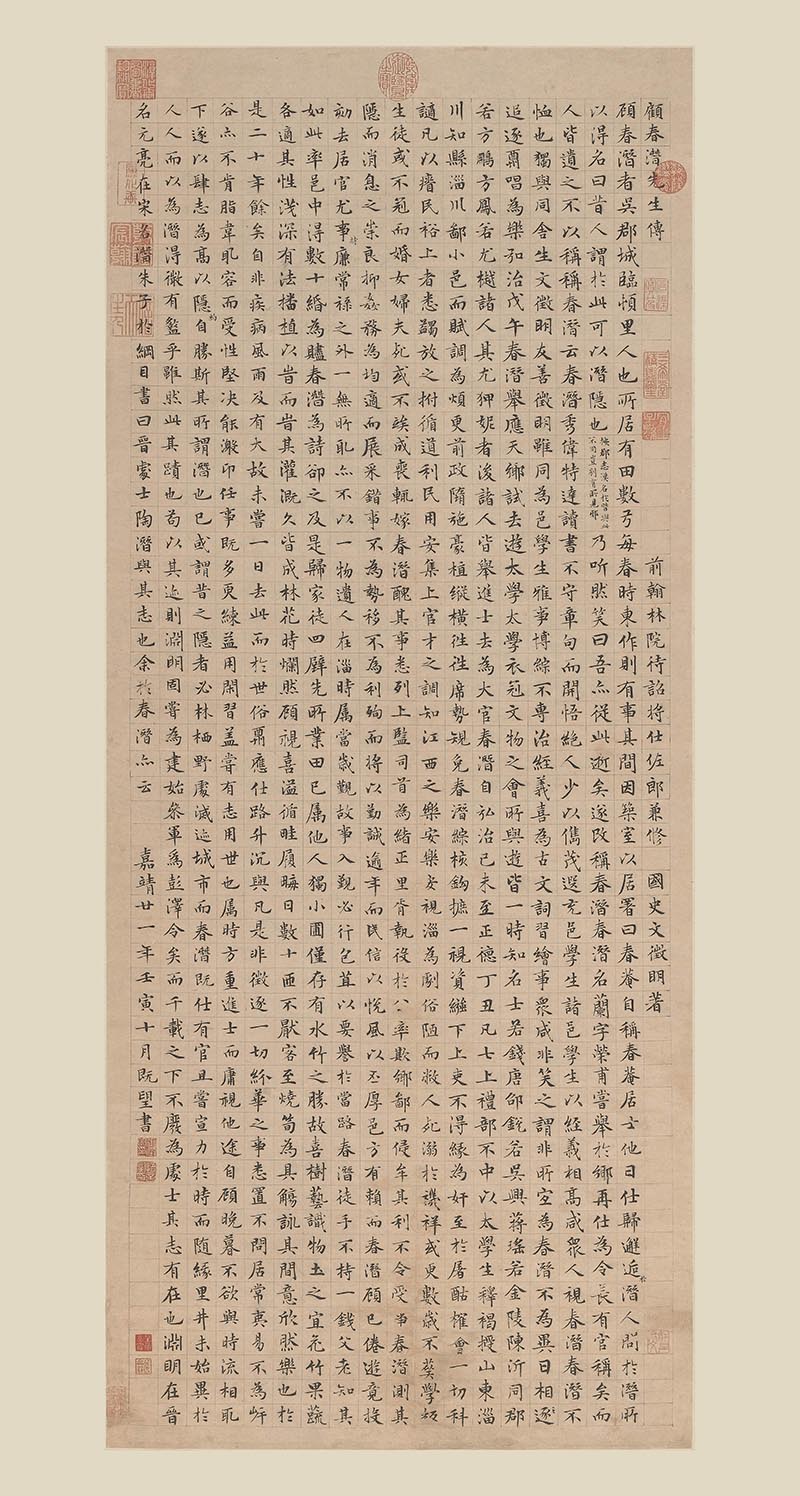 顧春潛先生傳　前翰林院待詔將仕佐郎兼修　國史文徵明著
顧春潛者吳郡城臨頓里人也所居有田數弓每春時東作則有事其間因築室以居署曰春菴自稱春菴居士他日仕歸邂逅潛人問於潛所
以得名曰昔人謂於此可以潛隱也乃听然笑曰吾亦從此逝矣遂改稱春潛春潛名蘭字榮甫嘗舉於鄉再仕為令長有官稱矣而
人皆遺之不以稱稱春潛云春潛秀偉特達讀書不守章句而開悟絕人少以儁茂選充邑學生諸邑學生以經義相高咸眾人視春潛春潛不
恤也獨與同舍生文徵明友善徵明雖同為邑學生雅事博綜不專治經義喜為古文詞習繪事眾咸非笑之謂非所宜為春潛不為異日相逐
追逐賡唱為樂弘治戊午春潛舉應天鄉試去遊太學太學衣冠文物之會所與遊皆一時知名士若錢唐邵銳若吳興蔣瑤若金陵陳沂同郡
若方鵬方鳳若尤樾諸人其尤狎妮者後諸人皆舉進士去為大官春潛自弘治己未至正德丁丑凡七上禮部不中以太學生釋褐授山東淄
川知縣淄川鄙小邑而賦調為煩更前政隋施豪植縱橫徃徃席勢規免春潛綜核鉤摭一視貲繇下上吏不得緣為奸至於屠酤榷會一切科
讁凡以瘠民裕上者悉蠲放之拊循道利民用安集上官才之調知江西之樂安樂安視淄為劇俗陋而敝人死溺於禨祥或更數歲不葬學校
生徒或不冠而婚女婦夫死或不踐成喪輒嫁春潛醜其事悉列上監司首為緒正里胥執役於公率欺鄉鄙而侵牟其利不令受事春潛測其
隱而消息之崇良抑姦務為均適而展采錯事不為勢移不為利殉而將以勤誠逾年而民信以悅風以丕厚邑方有賴而春潛顧已倦遊竟投
劾去居官尤事廉常祿之外一無所取亦不以一物遺人在淄時属當歲覲故事入覲必行包苴以要譽於當路春潛徒手不持一錢父老知其
如此率邑中得數十緡為贐春潛為詩卻之及是歸家徒四壁先所業田已属他人獨小圃僅存有水竹之勝故喜樹藝識物土之宜花竹果蔬
各適其性淺深有法播植以時而時其灌溉久皆成林花時爛然顧視喜溢循畦履畮日數十匝不厭客至燒筍為具觴詠其間意欣然樂也於
是二十年餘矣自非疾病風雨及有大故未嘗一日去此而於世俗賡應仕路升沉與凡是非徵逐一切紛華之事悉置不問居常夷易不為岈
谷亦不肯脂韋取容而受性堅決能激卬任事既多更練益用閑習蓋嘗有志用世也属時方重進士而庸視他途自顧晚暮不欲與時流相取
下遂以肆志為高以隱自勝斯其所謂潛也已或謂昔之隱者必林栖野處滅迹城市而春潛既仕有官且嘗宣力於時而隨緣里井未始異於
人人而以為潛得微有盭乎雖然此其蹟也苟以其迹則淵明固嘗為建始參軍為彭澤令矣而千載之下不廢為處士其志有在也淵明在晉
名元亮在宋名潛朱子於綱目書曰晉處士陶潛與其志也余於春潛亦云　嘉靖廿一年壬寅十月既望書